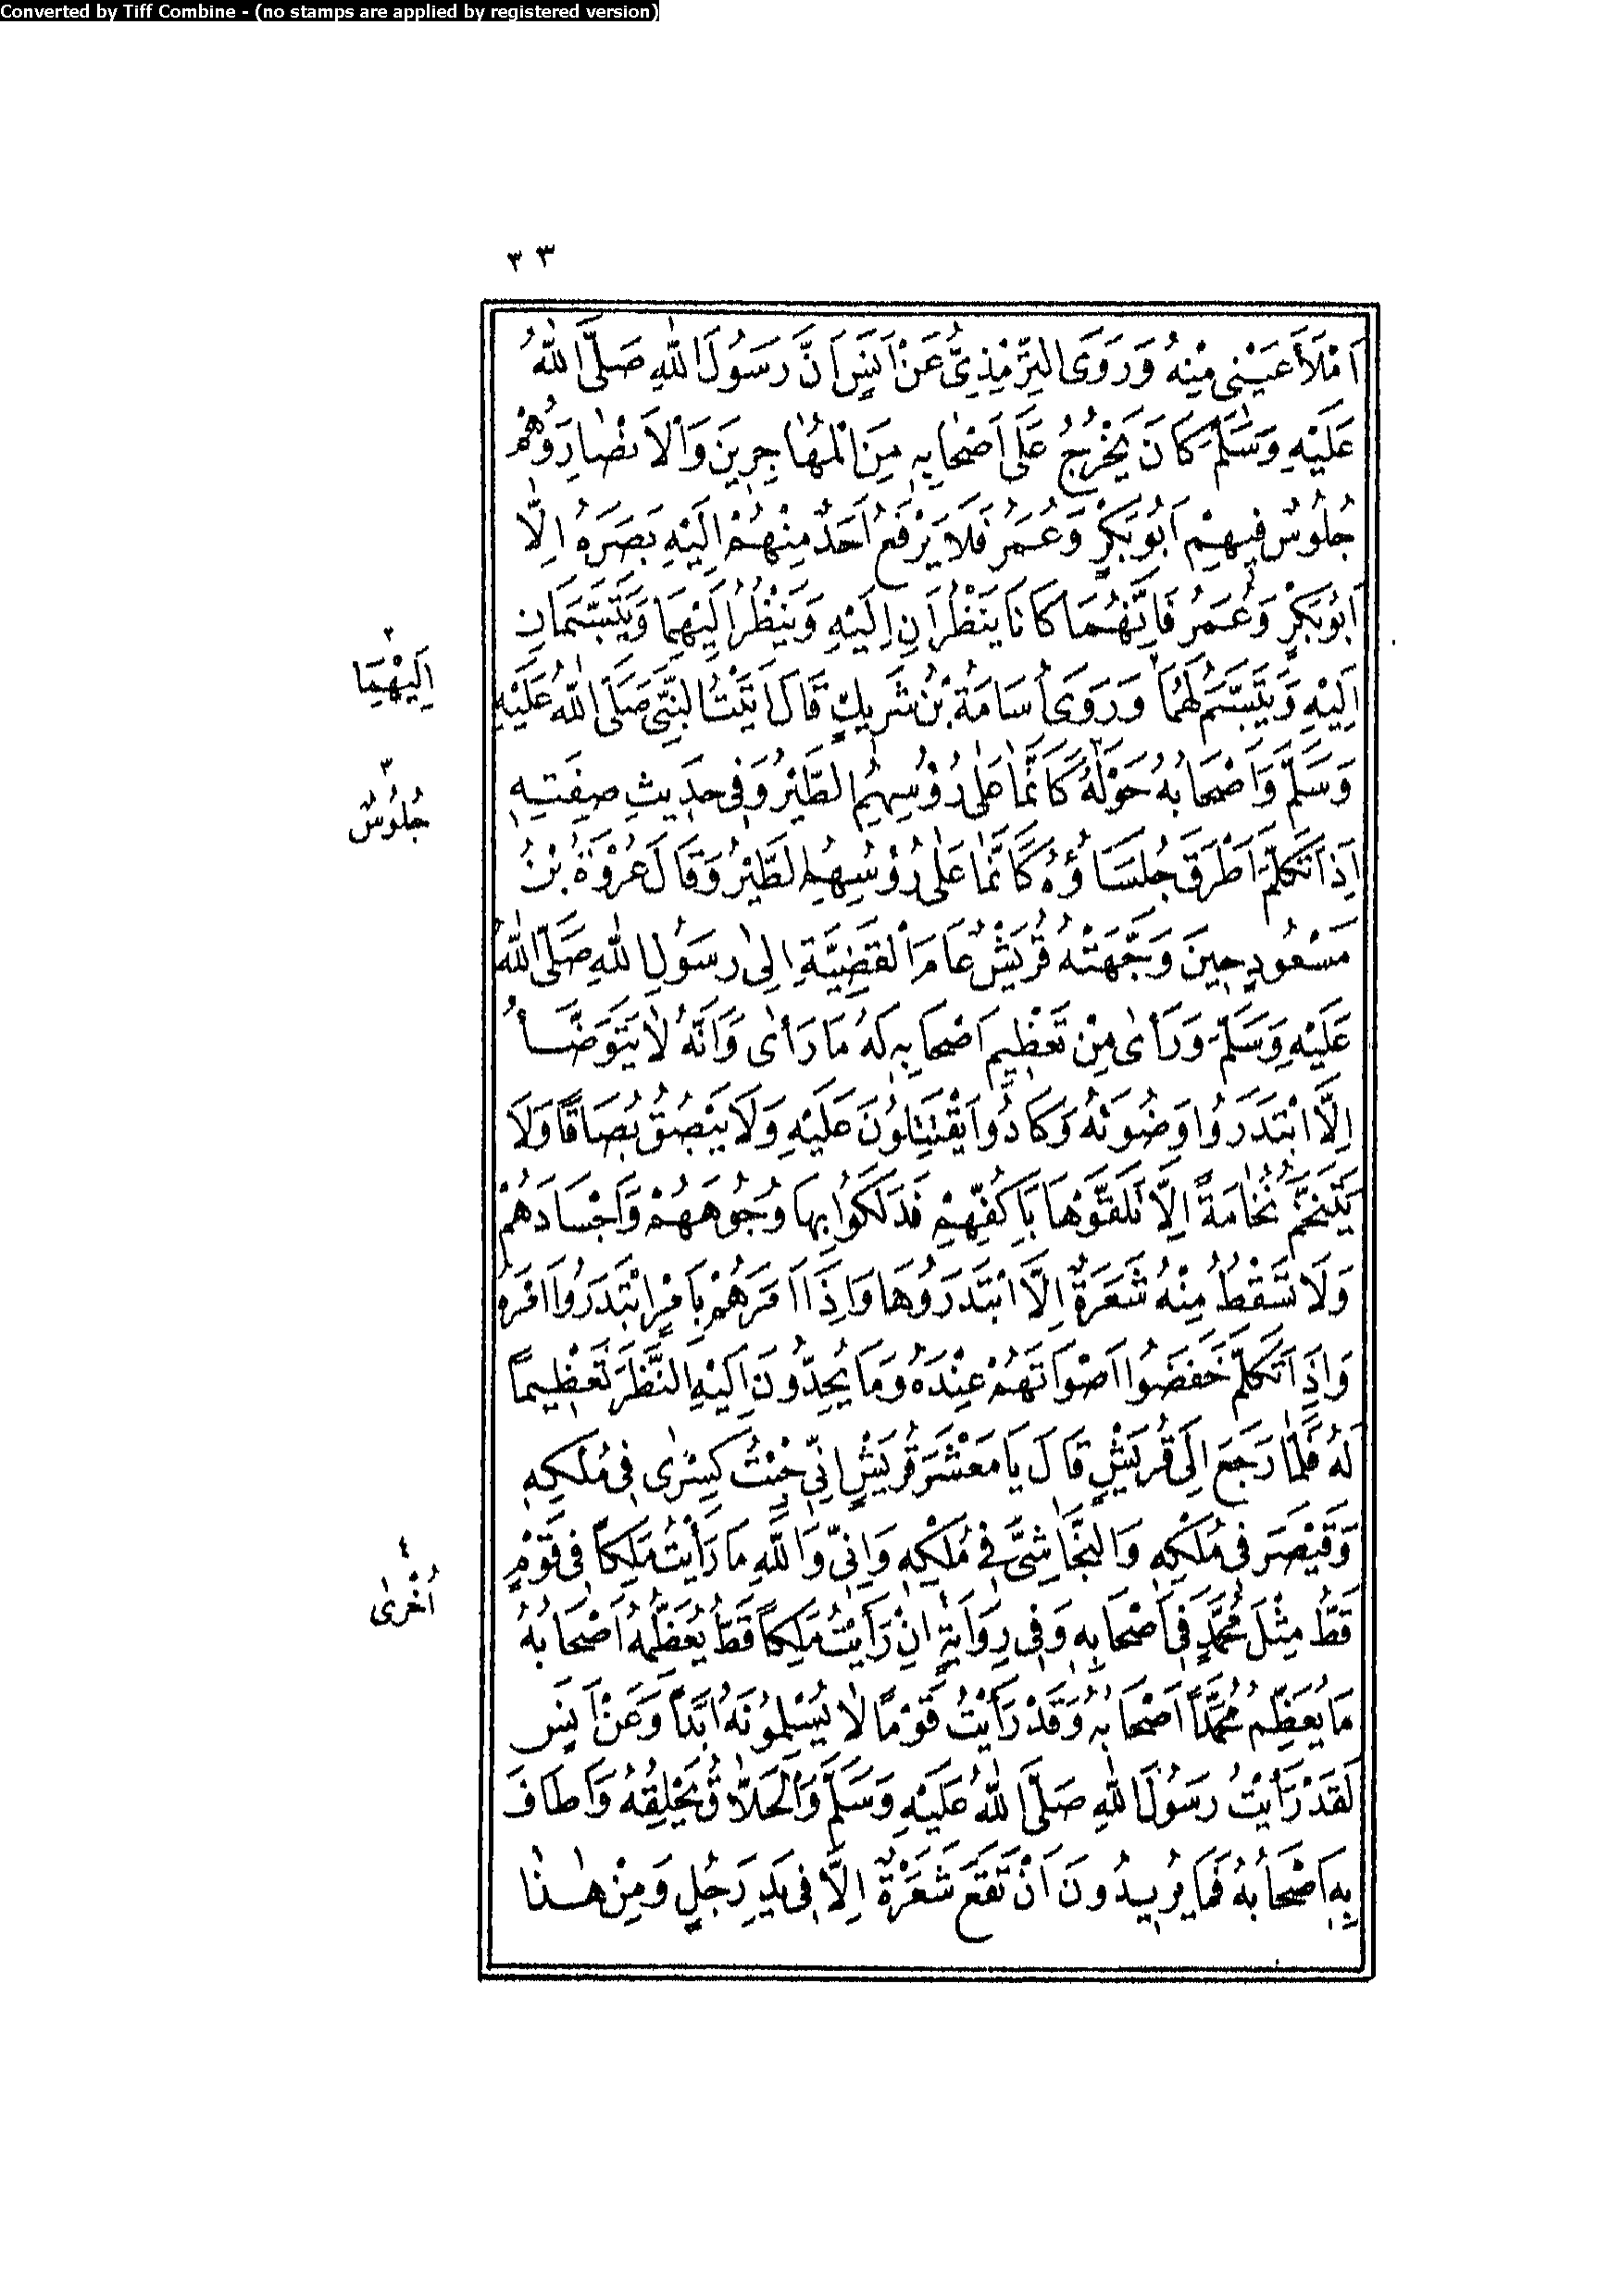 Converted by Tiff Combine - (no stamps are applied by registered version)
٣٣
اَمْلَأَ عَيْنِى مِنْهُ وَرَوَى التِّرْمِذِىُّ عَنْ اَنَسٍ اَنَّ رَسُولَ اللّٰهِ صَلَّى اللّٰهُ
عَلَيْهِ وَسَلَّمَ كَانَ يَخْرُجُ عَلَى اَصْحَابِهِ مِنَ الْمُهَاجِرِينَ وَالْاَنْصَارِ وَهُمْ
جُلُوسٌ فِيهِمْ اَبُو بَكْرٍ وَعُمَرُ فَلَا يَرْفَعُ اَحَدٌ مِنْهُمْ اِلَيْهِ بَصَرَهُ اِلَّا
اَبُو بَكْرٍ وَعُمَرُ فَاِنَّهُمَا كَانَا يَنْظُرَانِ اِلَيْهِ وَيَنْظُرُ اِلَيْهِمَا وَيَتَبَسَّمَانِ
اِلَيْهِ وَيَتَبَسَّمُ لَهُمَا وَرَوَى اُسَامَةُ بْنُ شَرِيكٍ قَالَ اَتَيْتُ النَّبِىَّ صَلَّى اللّٰهُ عَلَيْهِ
وَسَلَّمَ وَاَصْحَابُهُ حَوْلَهُ كَاَنَّمَا عَلٰى رُؤُسِهِمُ الطَّيْرُ وَفِى حَدِيثِ صِفَتِهِ
اِذَا تَكَلَّمَ اَطْرَقَ جُلَسَاؤُهُ كَاَنَّمَا عَلٰى رُؤُسِهِمُ الطَّيْرُ وَقَالَ عُرْوَةُ بْنُ
مَسْعُودٍ حِينَ وَجَّهَتْهُ قُرَيْشٌ عَامَ الْقَضِيَّةِ اِلٰى رَسُولِ اللّٰهِ صَلَّى اللّٰهُ
عَلَيْهِ وَسَلَّمَ وَرَأٰى مِنْ تَعْظِيمِ اَصْحَابِهِ لَهُ مَا رَأٰى وَاَنَّهُ لَا يَتَوَضَّأُ
اِلَّا ابْتَدَرُوا وَضُوئَهُ وَكَادُوا يَقْتَتِلُونَ عَلَيْهِ وَلَا يَبْصُقُ بُصَاقًا وَلَا
يَتَنَخَّمُ نُخَامَةً اِلَّا تَلَقَّوْهَا بِاَكُفِّهِمْ فَدَلَكُوا بِهَا وُجُوهَهُمْ وَاَجْسَادَهُمْ
وَلَا تَسْقُطُ مِنْهُ شَعَرَةٌ اِلَّا ابْتَدَرُوهَا وَاِذَا اَمَرَهُمْ بِاَمْرٍ ابْتَدَرُوا اَمْرَهُ
وَاِذَا تَكَلَّمَ خَفَضُوا اَصْوَاتَهُمْ عِنْدَهُ وَمَا يُحِدُّونَ اِلَيْهِ النَّظَرَ تَعْظِيمًا
لَهُ فَلَمَّا رَجَعَ اِلَى قُرَيْشٍ قَالَ يَا مَعْشَرَ قُرَيْشٍ اِنِّى جِئْتُ كِسْرٰى فِى مُلْكِهِ
وَقَيْصَرَ فِى مُلْكِهِ وَالنَّجَاشِىَّ فِى مُلْكِهِ وَاِنِّى وَاللّٰهِ مَا رَأَيْتُ مَلِكًا فِى قَوْمٍ
قَطُّ مِثْلَ مُحَمَّدٍ فِى اَصْحَابِهِ وَفِى رِوَايَةٍ اِنْ رَأَيْتُ مَلِكًا قَطُّ يُعَظِّمُهُ اَصْحَابُهُ
مَا يُعَظِّمُ مُحَمَّدًا اَصْحَابُهُ وَقَدْ رَأَيْتُ قَوْمًا لَا يُسْلِمُونَهُ اَبَدًا وَعَنْ اَنَسٍ
لَقَدْ رَأَيْتُ رَسُولَ اللّٰهِ صَلَّى اللّٰهُ عَلَيْهِ وَسَلَّمَ وَالْحَلَّاقُ يَحْلِقُهُ وَاَطَافَ
بِهِ اَصْحَابُهُ فَمَا يُرِيدُونَ اَنْ تَقَعَ شَعَرَةٌ اِلَّا فِى يَدِ رَجُلٍ وَمِنْ هٰذَا
٢
اِلَيْهِمَا
٣
جُلُوسٌ
٤
اُخْرٰى